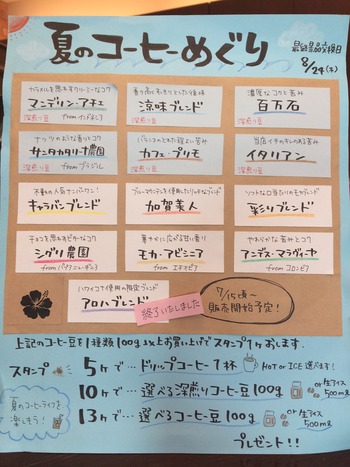 夏のコーヒーめぐり
最終品交換日
8/24(木)
カラメルを思わすクリーミーなコク
マンデリン・アチェ
深煎り豆
fromインドネシア
香り高くすっきりとした後味
涼味ブレンド
深煎り豆
濃厚なコクと苦み
百万石
深煎り豆
ナッツのような香りとコク
サンタカタリーナ農園
深煎り豆
fromブラジル
バランスのとれた程よい苦み
カフェ・プリモ
深煎り豆
当店イチのキレのある苦み
イタリアン
深煎り豆
不動の人気ナンバーワン!
キャラバンブレンド
ブルーマウンテンを使用したリッチなブレンド
加賀美人
ソフトな口当たりのモカブレンド
彩りブレンド
チョコを思わすビターなコク
シグリ農園
fromパプアニューギニア
華やかに広がる甘い香り
モカ・アビシニア
fromエチオピア
やわらかな苦みとコク
アンデス・マラヴィーヤ
fromコロンビア
ハワイコナ使用の限定ブレンド
アロハブレンド
終了いたしました
7/15頃〜
販売開始予定!
上記のコーヒー豆を1種類100g以上お買い上げでスタンプ1ヶおします。
スタンプ 5ヶで…ドリップコーヒー1杯 HOT or ICE選べます!
10ヶで…選べる深煎りコーヒー豆100g or 生アイス500ml
13ヶで…選べるコーヒー豆100g or 生アイス500ml
夏のコーヒーライフを
楽しもう!
プレゼント!!